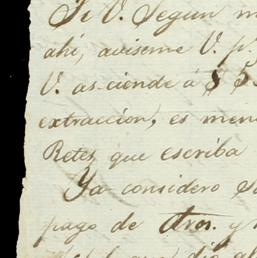 Si V. Segun m
ahí, aviseme V. p.
V. as ciende á $ 5
extraccion, es men
Retes que escriba
Ya considero
pago de Aros. y